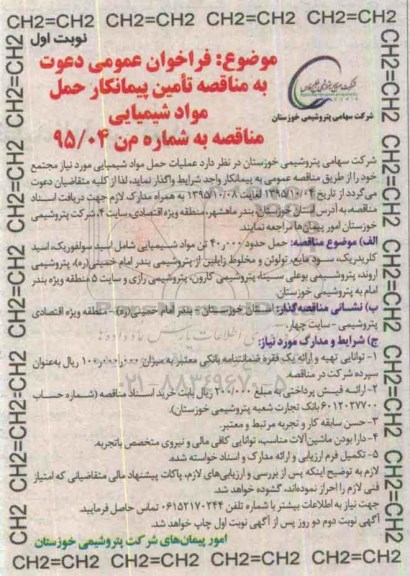 CH2=CH2 CH2=CH2 CH2=CH2 CH2=CH2
نوبت اول
موضوع: فراخوان عمومی دعوت
به مناقصه تأمین پیمانکار حمل
مواد شیمیایی
مناقصه به شماره م‌ن ۹۵/۰۴
شرکت سهامی پتروشیمی خوزستان
شرکت سهامی پتروشیمی خوزستان در نظر دارد عملیات حمل مواد شیمیایی مورد نیاز مجتمع
خود را از طریق مناقصه عمومی به پیمانکار واجد شرایط واگذار نماید، لذا از کلیه متقاضیان دعوت
می‌گردد از تاریخ ۱۳۹۵/۱۰/۰۴ لغایت ۱۳۹۵/۱۰/۰۸ به همراه مدارک لازم جهت دریافت اسناد
مناقصه، به آدرس استان خوزستان بندر ماهشهر، منطقه ویژه اقتصادی، سایت ۴، شرکت پتروشیمی
خوزستان امور پیمان‌ها مراجعه نمایند.
الف) موضوع مناقصه: حمل حدود ۴۰٫۰۰۰ تن مواد شیمیایی شامل اسید سولفوریک، اسید
کلریدریک، سود مایع، تولوئن و مخلوط زایلین از پتروشیمی بندر امام خمینی(ره)، پتروشیمی
اروند، پتروشیمی بوعلی سینا، پتروشیمی کارون، پتروشیمی رازی و سایت ۵ منطقه ویژه بندر
امام به پتروشیمی خوزستان
ب) نشانی مناقصه‌گذار: استان خوزستان - بندر امام خمینی(ره) - منطقه ویژه اقتصادی
پتروشیمی - سایت چهار.
ج) شرایط و مدارک مورد نیاز:
۱- توانایی تهیه و ارائه یک فقره ضمانتنامه بانکی معتبر به میزان ریال به‌عنوان
سپرده شرکت در مناقصه.
۲- ارائه فیش پرداختی به مبلغ ۲۰۰/۰۰۰ ریال بابت خرید اسناد مناقصه (شماره حساب
۶۰۱۲۰۲۷۷۰۰ بانک تجارت شعبه پتروشیمی خوزستان).
۳- حسن سابقه کار و تجربه مرتبط و معتبر.
۴- دارا بودن ماشین آلات مناسب، توانایی کافی مالی و نیروی متخصص باتجربه.
۵- تکمیل فرم ارزیابی و ارائه مدارک و اسناد خواسته شده.
لازم به توضیح اینکه پس از بررسی و ارزیابی‌های لازم، پاکات پیشنهاد مالی متقاضیانی که امتیاز
فنی لازم را احراز نموده‌اند، گشوده خواهد شد.
جهت نیاز به اطلاعات بیشتر با شماره تلفن ۰۶۱۵۲۱۷۰۲۴۴ تماس حاصل فرمایید.
آگهی نوبت دوم دو روز پس از آگهی نوبت اول چاپ خواهد شد.
امور پیمان‌های شرکت پتروشیمی خوزستان
CH2=CH2 CH2=CH2 CH2=CH2 CH2=CH2